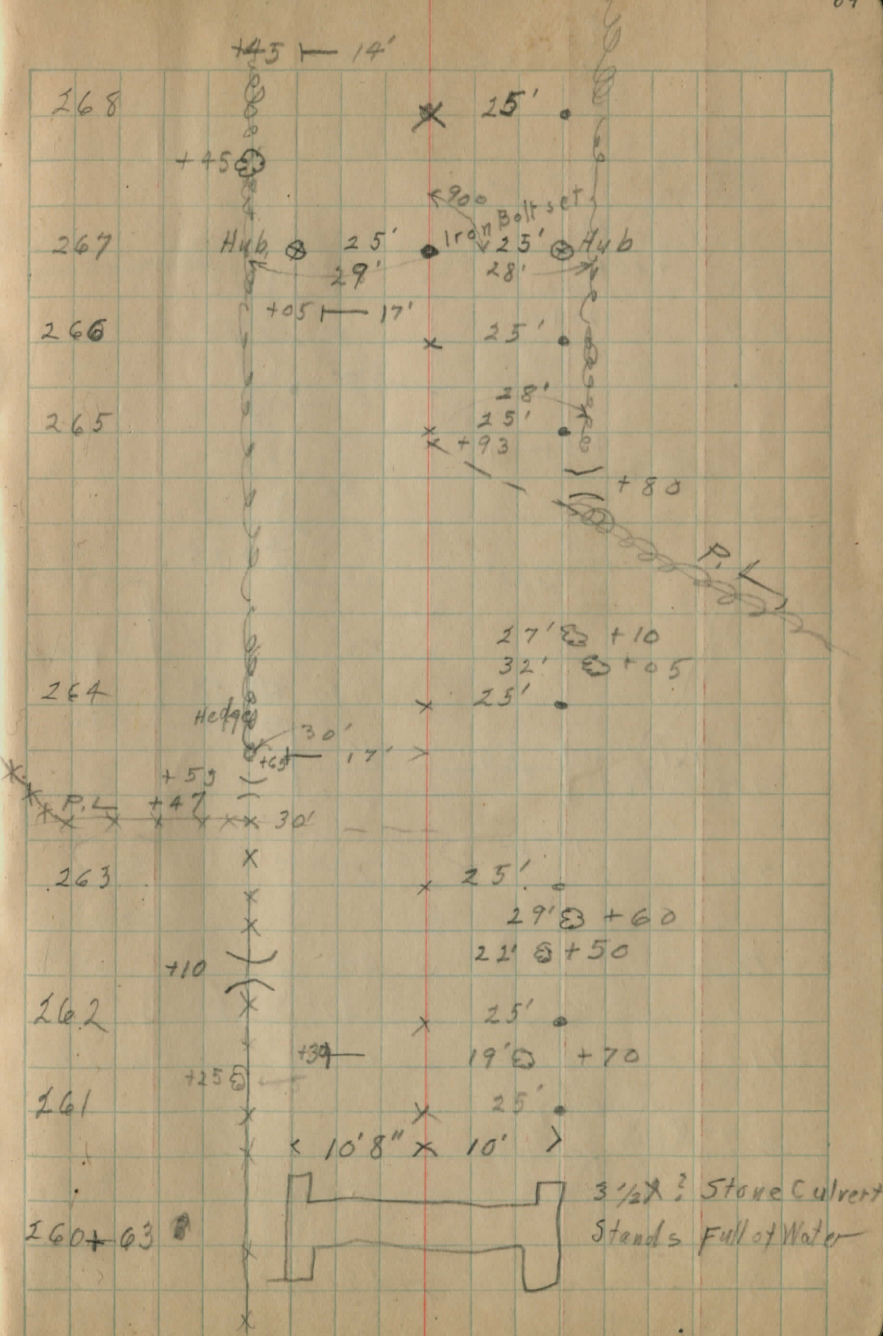 +45 14'
268 25'
+45
900
Iron Bolt set
267 Hub 25' 25' Hub
29' 28'
+05 17'
266 25'
28'
265 25'
+93
+80
P.L.
27' +10
32' +05
264 25'
Hedge 30'
+65 17'
+55
P.L +47 30'
263 25'
29' +60
22' +50
+10
262 25'
19' +70
+25
261 25'
10'8" 10'
3 1/2 X ? Stone Culvert
260+63 Stands Full of Water